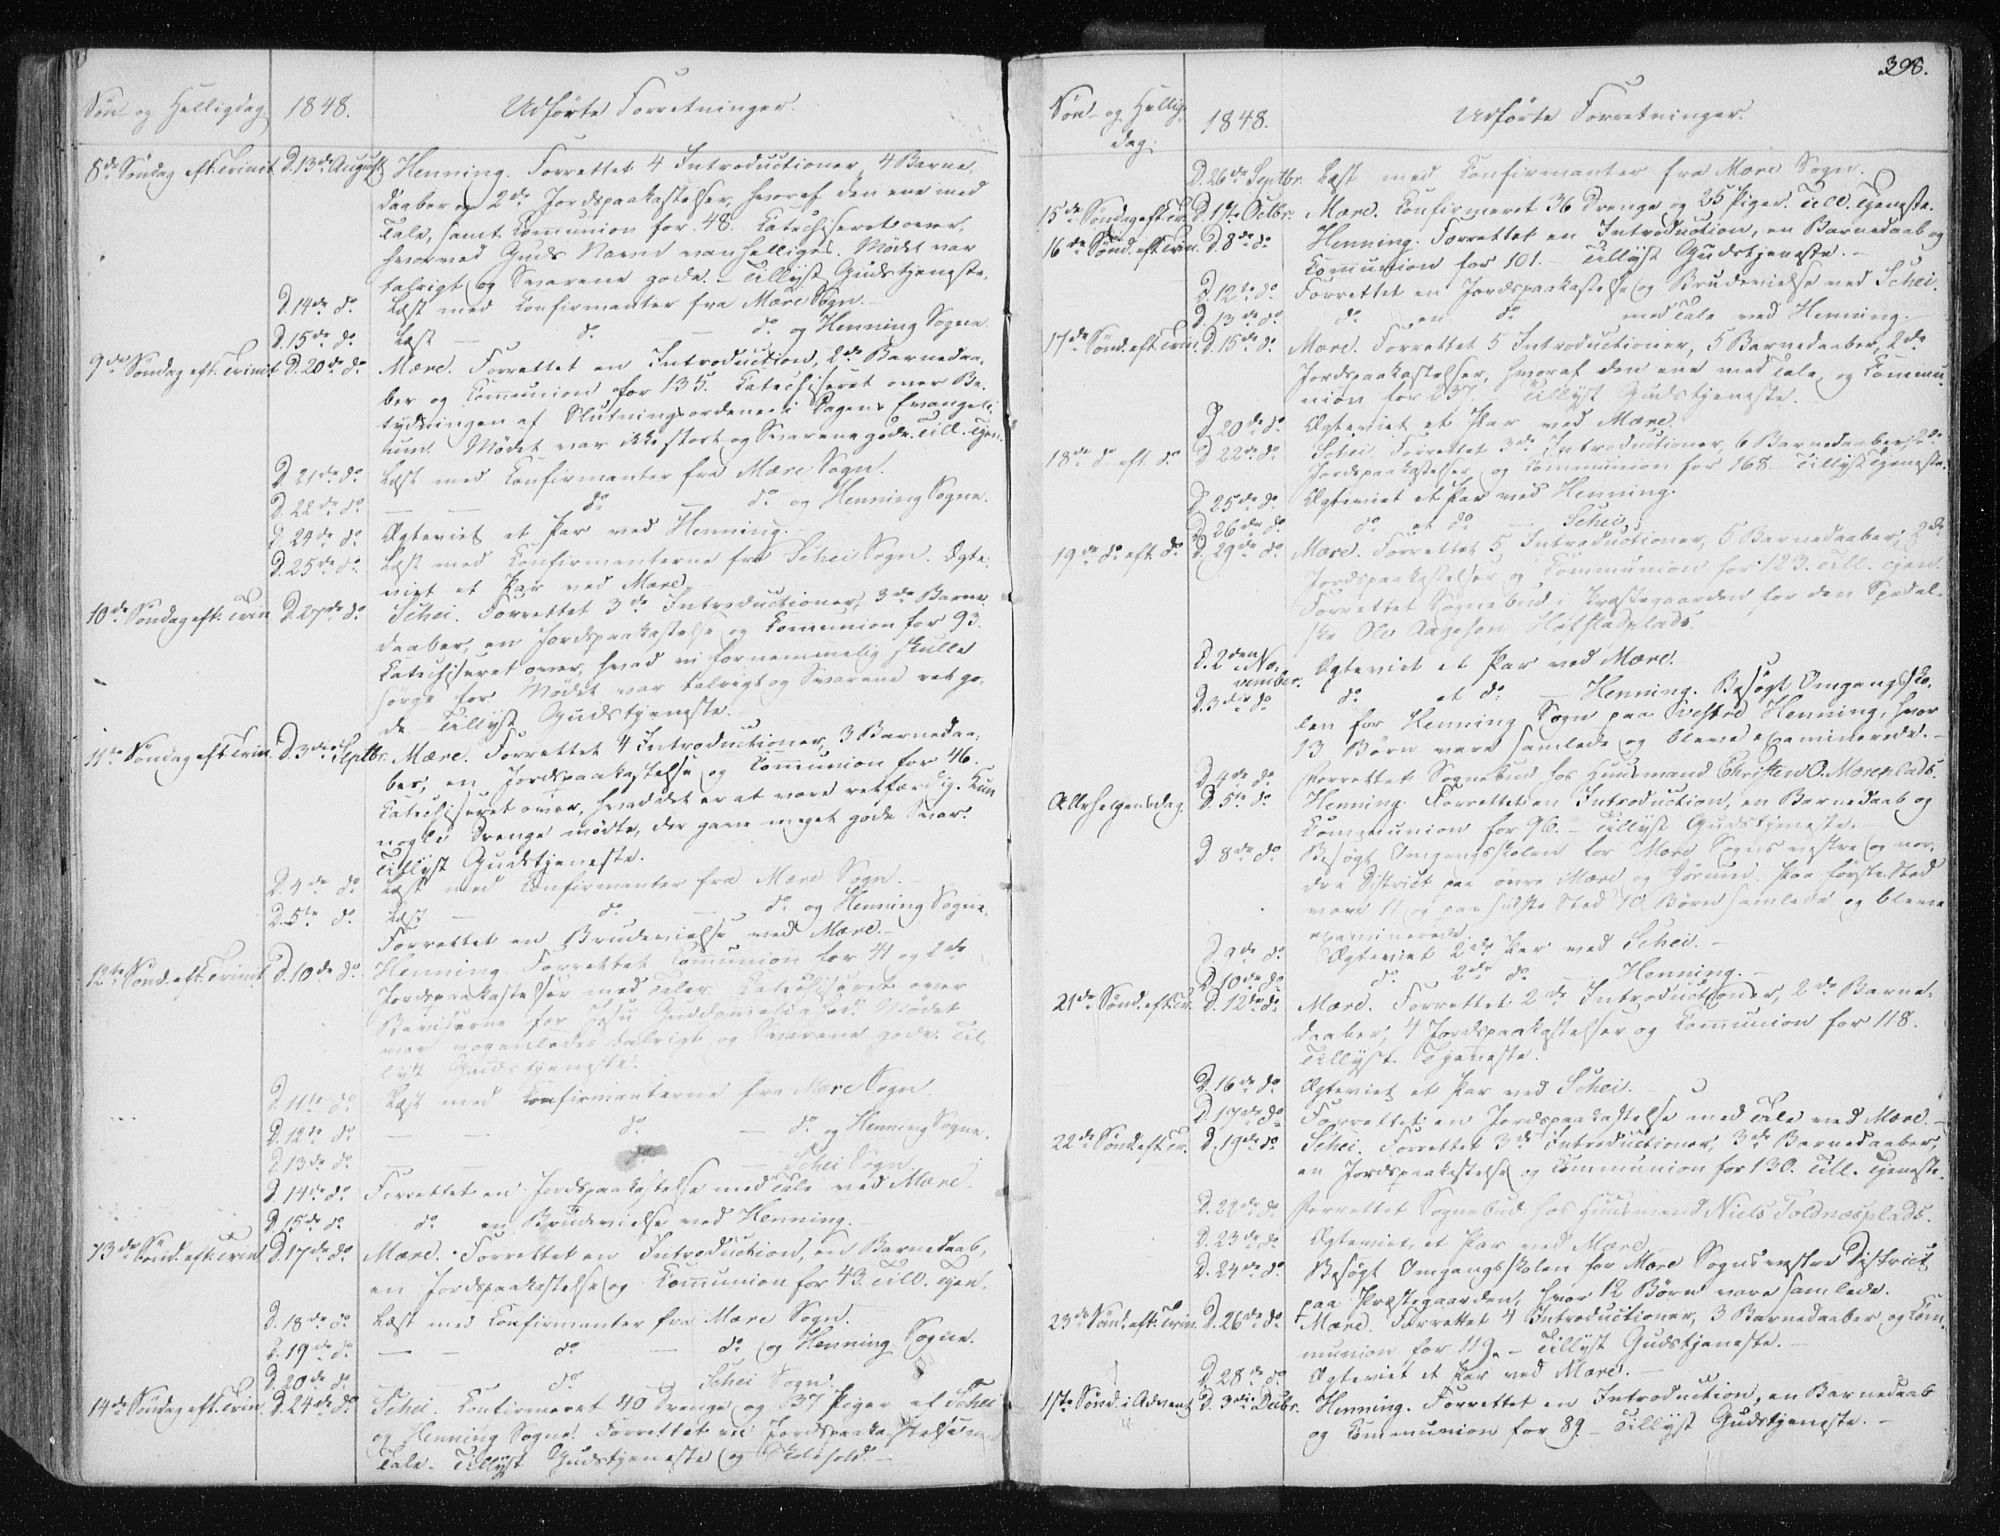 Søn- og Helligdag 1848. Udførte Forretninger.
8de Søndag eft. Trinit. D. 13de August Henning. Forrettet 4 Introductioner, 4 Barne-
daaber og 2de Jordspaakastelser, hvoraf den ene med
Tale, samt Communion for 48. Catechiseret over,
hvorved Guds Navn vanhelliges. Mødet var
talrigt og Svarene gode. – Tillyst Gudstjeneste.
D. 14de do Læst med Confirmanter fra Mære Sogn.
D. 15de do Læst – do – do og Henning Sogne.
9de Søndag eft. Trinit. D. 20de do Mære. Forrettet en Introduction, 2de Barnedaa-
ber og Communion for 135. Catechiseret over Be-
tydningen af Slutningsordene i Dagens Evangeli-
um. Mødet var ikke stort og Svarene gode. Till. Tjen.
D. 21de do Læst med Confirmanter fra Mære Sogn.
D. 22de do — — do – do og Henning Sogne.
D. 24de do Ægteviet et Par ved Henning. –
D. 25de do Læst med Confirmanterne fra Schei Sogn. Ægte-
viet et Par ved Mære.
10de Søndag eft. Trin. D. 27de do Schei. Forrettet 3de Introductioner, 3de Barne-
daaber, en Jordspaakastelse og Communion for 93.
Catechiseret over, hvad vi fornemmelig skulle
sørge for. Mødet var talrigt og Svarene ret go-
de. – Tillyst Gudstjeneste. –
11te Søndag eft. Trin. D. 3die Septbr. Mære. Forrettet 4 Introductioner, 3 Barnedaa-
ber, en Jordspaakastelse og Communion for 46.
Catechiseret over, hvad det er at være retfærdig. Kun
nogle Drenge mødte, der gave meget gode Svar.
Tillyst Gudstjeneste.
D. 4de do Læst med Confirmanter fra Mære Sogn. –
D. 5te do Læst – do – do og Henning Sogne.
Forrettet en Brudevielse ved Mære. –
12te Sønd. eft. Trinit. D. 10de do Henning. Forrettet Communion for 41 og 2de
Jordspaakastelser med Taler. Catechiseret over
Beviserne for Jesu Guddommelighed. Mødet
var nogenledes talrigt og Svarene gode. Til-
lyst Gudstjeneste.
D. 11te do Læst med Confirmanterne fra Mære Sogn.
D. 12te do — — do — do og Henning Sogne.
D. 13de do — do — Schei Sogn.
D. 14de do Forrettet en Jordspaakastelse med Tale ved Mære.
D. 15de do do en Brudevielse ved Henning. –
13de Sønd. eft. Trin. D. 17de do Mære. Forrettet en Introduction, en Barnedaab,
en Jordspaakastelse og Communion for 43. Till. Tjen.
D. 18de do Læst med Confirmanter fra Mære Sogn.
D. 19de do — — do — do og Henning Sogne.
D. 20de do — do — Schei Sogn.
14de Søndag eft. Trin. D. 24de do Schei. Confirmeret 40 Drenge og 37 Piger af Schei
og Henning Sogne. Forrettet en Jordspaakastelse med
Tale. Tillyst Gudstjeneste og Skolehold. –
398.
Søn- og Hellig-
dag. 1848. Udførte Forretninger.
D. 26de Septbr. Læst med Confirmanter fra Mære Sogn.
15de Søndag eft. Tr. D. 1ste Octbr. Mære. Confirmeret 36 Drenge og 25 Piger. Till. Tjeneste.
16de Sønd. eft. Trin. D. 8de do Henning. Forrettet en Introduction, en Barnedaab og
Communion for 101. – Tillyst Gudstjeneste. –
D. 12te do Forrettet en Jordspaakastelse og Brudevielse ved Schei.
D. 13de do do en do med Tale ved Henning. –
17de Sønd. eft. Trin. D. 15de do Mære. Forrettet 5 Introductioner, 5 Barnedaaber, 2de
Jordspaakastelser, hvoraf den ene med Tale, og Commu-
nion for 237. – Tillyst Gudstjeneste.
D. 20de do Ægteviet et Par ved Mære.
18de do eft. do D. 22de do Schei. Forrettet 3de Introductioner, 6 Barnedaaber, 2de
Jordspaakastelser og Communion for 168. Tillyst Tjeneste.
D. 25de do Ægteviet et Par ved Henning.
D. 26de do do et do – Schei.
19de do eft. do D. 29de do Mære. Forrettet 5 Introductioner, 5 Barnedaaber, 2de
Jordspaakastelser og Communion for 123. Till. Tjen.
Forrettet Sognebud i Præstegaarden for den Spedal-
ske Ole Aageson Hofstadplads.
D. 2den No-
vember. Ægteviet et Par ved Mære.
D. 3die do do et do – Henning. Besøgt Omgangssko-
len for Henning Sogn paa Vestre Henning, hvor
13 Børn vare samlede og bleve examinerede. –
D. 4de do Forrettet Sognebud hos Huusmand Christen O. Mæreplads.
Allehelgensdag. D. 5te do Henning. Forrettet en Introduction, en Barnedaab og
Communion for 96. – Tillyst Gudstjeneste. –
D. 8de do Besøgt Omgangsskolen for Mære Sogns vestre og nor-
dre District paa øvre Mære og Jørum. Paa første Sted
vare 11 og paa sidste Sted 10 Børn samlede og bleve
examinerede.
D. 9de do Ægteviet 2de Par ved Schei. –
D. 10de do do 2de do – Henning. –
21de Sønd. eft. Tr. D. 12te do Mære. Forrettet 2de Introductioner, 2de Barne-
daaber, 4 Jordspaakastelser og Communion for 118.
Tillyst Tjeneste.
D. 16de do Ægteviet et Par ved Schei.
D. 17de do Forrettet en Jordspaakastelse med Tale ved Mære. –
22de Sønd. eft. Tr. D. 19de do Schei. Forrettet 3de Introductioner, 3de Barnedaaber,
en Jordspaakastelse og Communion for 130. Till. Tjeneste.
D. 22de do Forrettet Sognebud hos Huusmand Niels Toldnæsplads.
D. 23de do Ægteviet et Par ved Mære.
D. 24de do Besøgt Omgangsskolen for Mære Sogns vestre District
paa Præstegaarden, hvor 12 Børn vare samlede.
23de Sønd. eft. Trin. D. 26de do Mære. Forrettet 4 Introductioner, 3 Barnedaaber og Com-
munion for 119. – Tillyst Gudstjeneste. –
D. 28de do Ægteviet et Par ved Mære. –
1ste Sønd. i Advent D. 3die Decbr. Henning. Forrettet en Introduction, en Barnedaab
og Communion for 89. – Tillyst Gudstjeneste. –